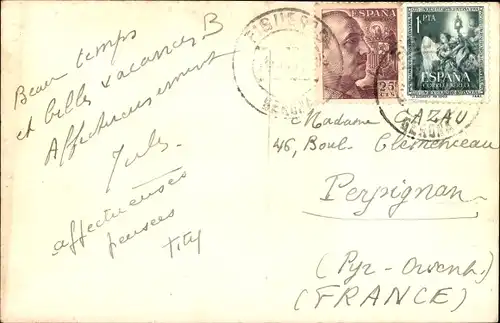 Beau temps
et belles vacances. B
Affectueusement
Jules
affectueuses
pensées
Tity
FIGUERAS
GERONA
ESPAÑA
25
CTS
1 PTA
ESPAÑA
CORREO AEREO
GERONA
Madame CAZAU
46, Boul. Clemenceau
Perpignan
(Pyr-Orient.)
(FRANCE)